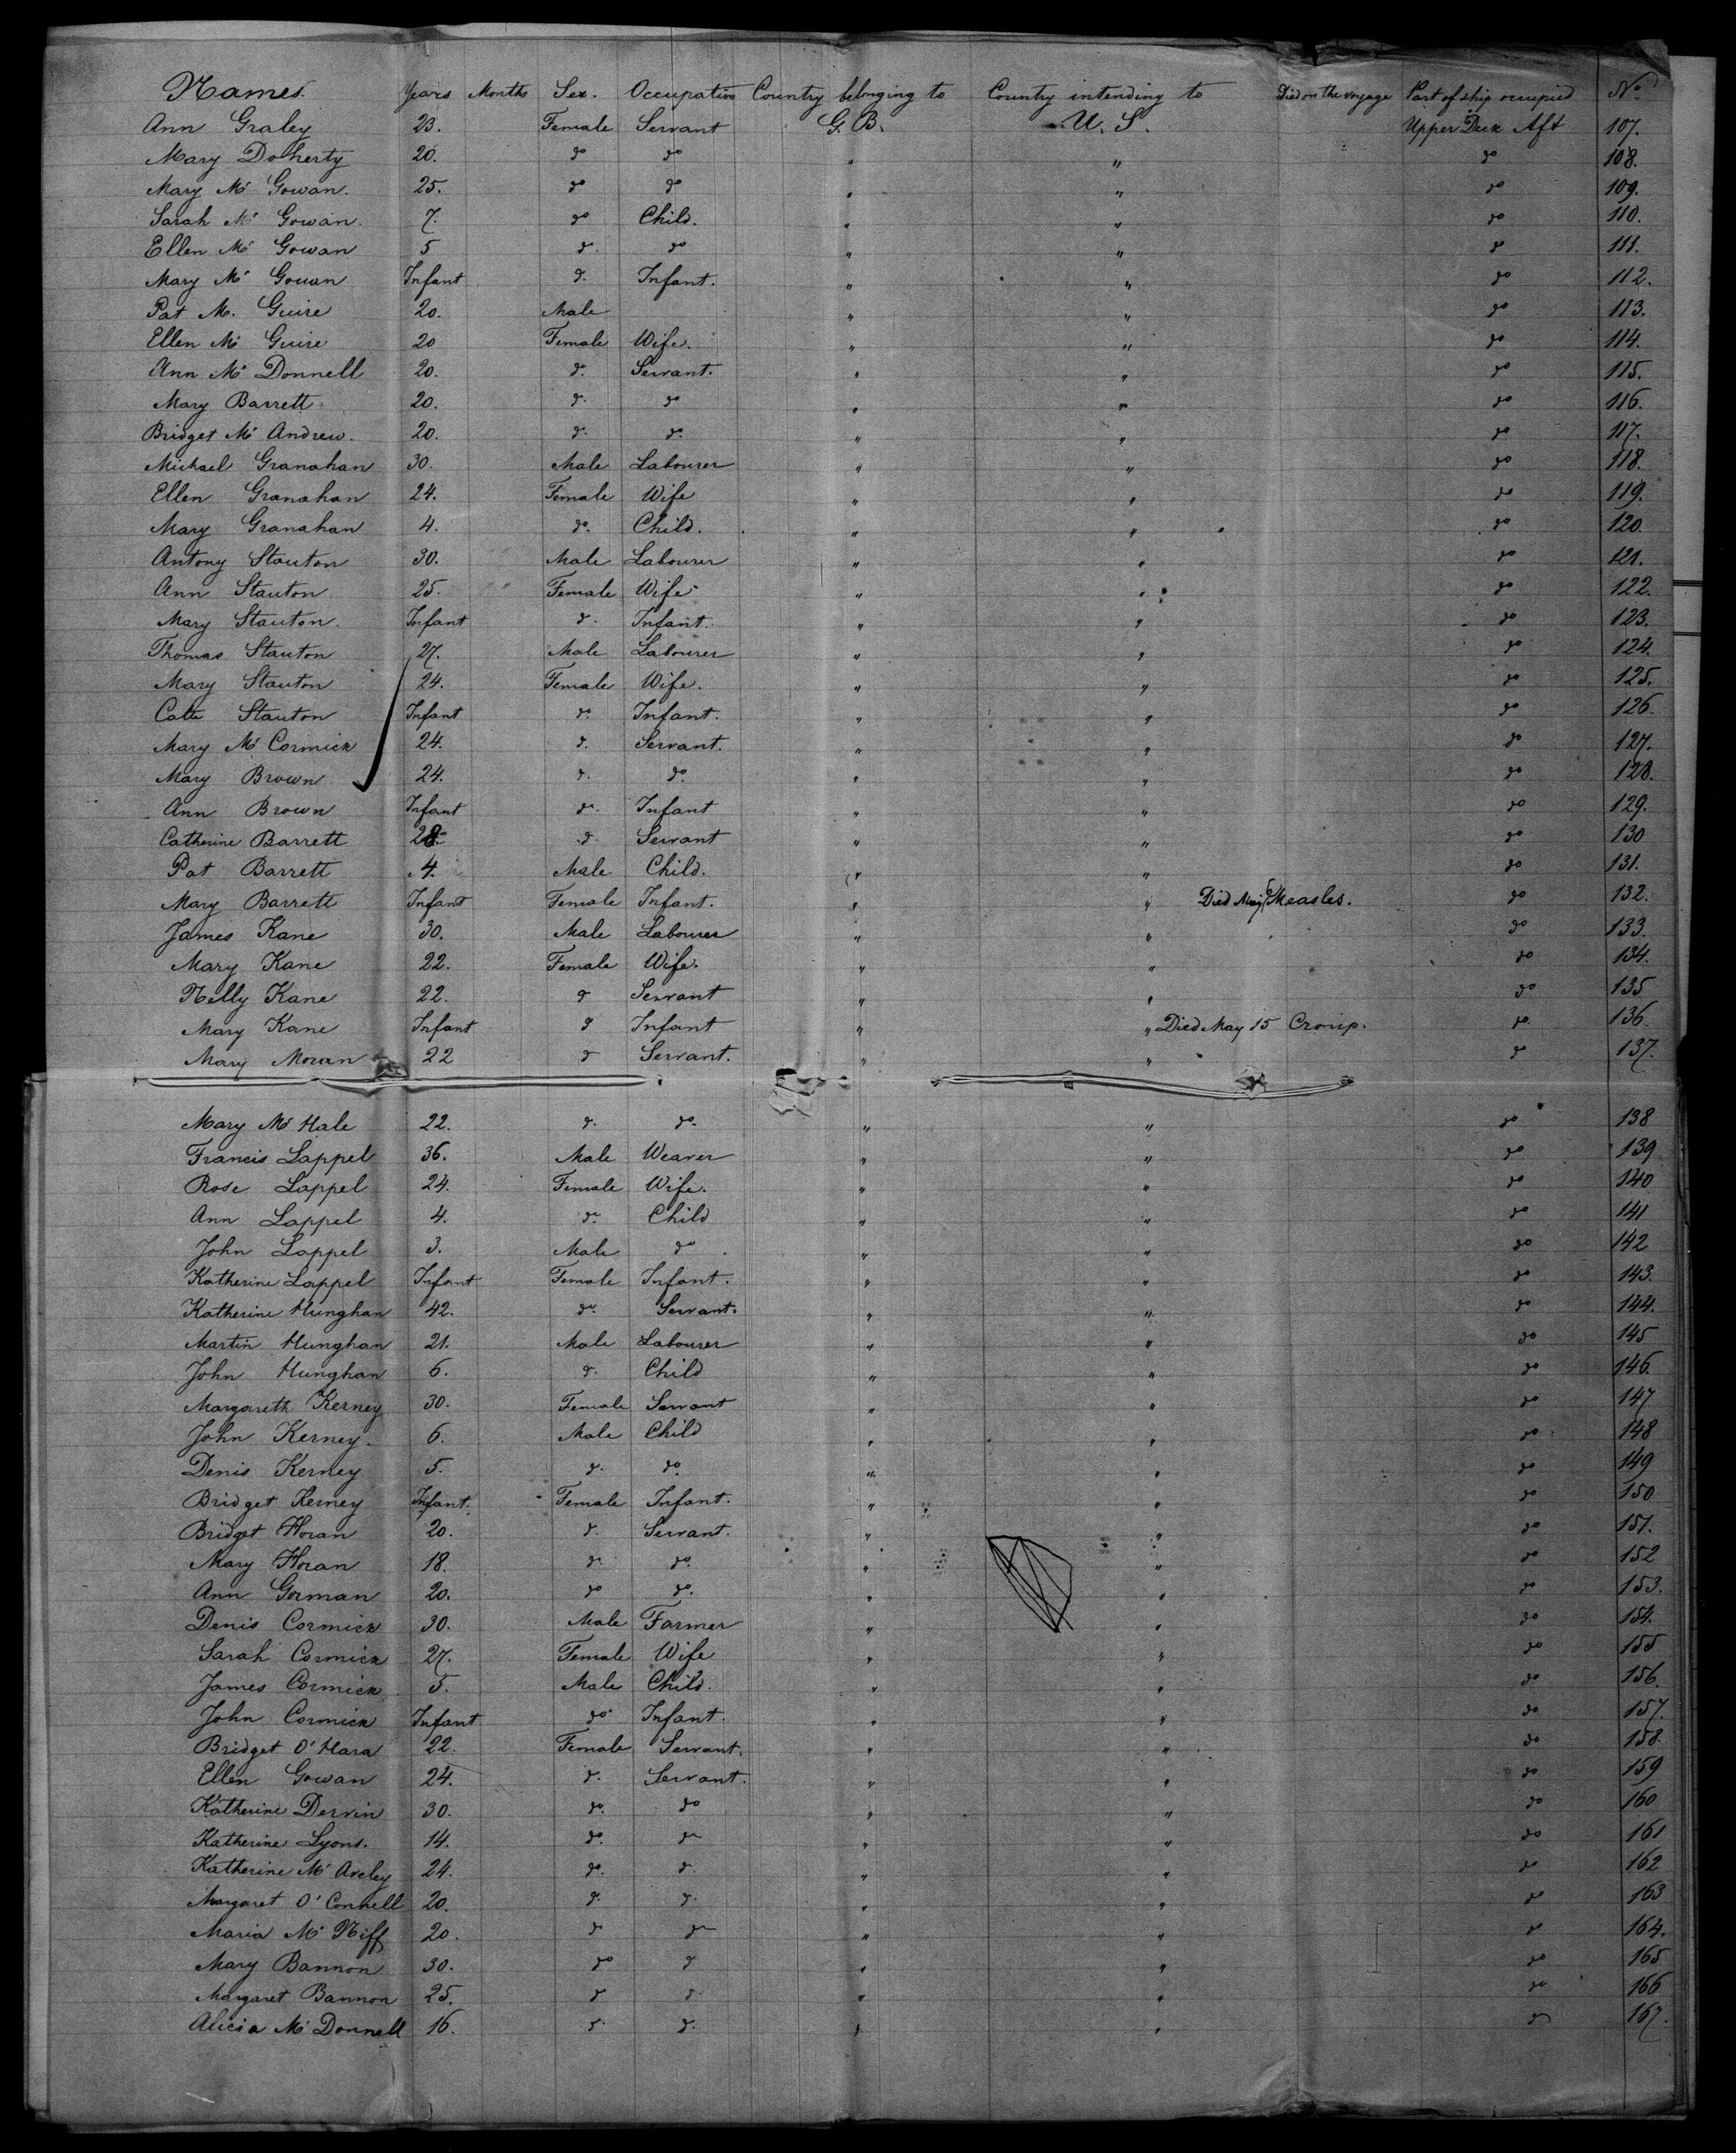 Names. Years Months Sex. Occupation Country belonging to Country intending to Died on the voyage Part of ship occupied No.
Ann Graley 23. Female Servant G. B. U. S. Upper Deck Aft 107.
Mary Doherty 20. do do " " do 108.
Mary Mc Gowan. 25. do do " " do 109.
Sarah Mc Gowan. 7. do Child. " " do 110.
Ellen Mc Gowan 5 do. do " " do 111.
Mary Mc Gowan Infant do. Infant. " " do 112.
Pat M. Guire 20. Male " " do 113.
Ellen Mc Guire 20 Female Wife. " " do 114.
Ann Mc Donnell 20. do. Servant. " " do 115.
Mary Barrett 20. do. do " " do 116.
Bridget Mc Andrew. 20. do. do. " " do 117.
Michael Granahan 30. Male Labourer " " do 118.
Ellen Granahan 24. Female Wife " " do 119.
Mary Granahan 4. do. Child. " " do 120.
Antony Stauton 30. Male Labourer " " do 121.
Ann Stauton 25. Female Wife " " do 122.
Mary Stauton. Infant do. Infant. " " do 123.
Thomas Stauton 27. Male Labourer " " do 124.
Mary Stauton 24. Female Wife. " " do 125.
Cath Stauton Infant do. Infant. " " do 126.
Mary Mc Cormick 24. do. Servant. " " do 127.
Mary Brown 24. do. do. " " do 128.
Ann Brown Infant do. Infant " " do 129.
Catherine Barrett 28. do. Servant " " do 130
Pat Barrett 4. Male Child. " " do 131.
Mary Barrett Infant Female Infant. " " Died May Measles. do 132.
James Kane 30. Male Labourer " " do 133.
Mary Kane 22. Female Wife. " " do 134.
Nelly Kane 22. do Servant " " do 135
Mary Kane Infant do Infant " " Died May 15 Croup. do 136.
Mary Moran 22 do Servant. " " do 137.
Mary Mc Hale 22. do. do. " " do 138
Francis Lappel 36. Male Weaver " " do 139
Rose Lappel 24. Female Wife. " " do 140
Ann Lappel 4. do. Child " " do 141
John Lappel 3. Male do " " do 142
Katherine Lappel Infant Female Infant. " " do 143.
Katherine Hunghan 42. do. Servant. " " do 144.
Martin Hunghan 21. Male Labourer " " do 145
John Hunghan 6. do. Child " " do 146.
Margareth Kerney 30. Female Servant " " do 147
John Kerney. 6. Male Child " " do 148
Denis Kerney 5. do. do. " " do 149
Bridget Kerney Infant. Female Infant. " " do 150
Bridget Horan 20. do. Servant. " " do 151.
Mary Horan 18. do. do. " " do 152
Ann Gorman 20. do do. " " do 153.
Denis Cormick 30. Male Farmer " " do 154.
Sarah Cormick 27. Female Wife " " do 155
James Cormick 5. Male Child. " " do 156.
John Cormick Infant do. Infant. " " do 157.
Bridget O'Hara 22. Female Servant. " " do 158.
Ellen Gowan 24. do. Servant. " " do 159
Katherine Dervin 30. do. do " " do 160
Katherine Lyons. 14. do. do " " do 161
Katherine Mc Aveley 24. do. do. " " do 162
Margaret O'Connell 20. do. do. " " do 163
Maria Mc Niff 20. do do " " do 164.
Mary Bannon 30. do do " " do 165
Margaret Bannon 25. do do. " " do 166
Alicia Mc Donnell 16. do. do. " " do 167.